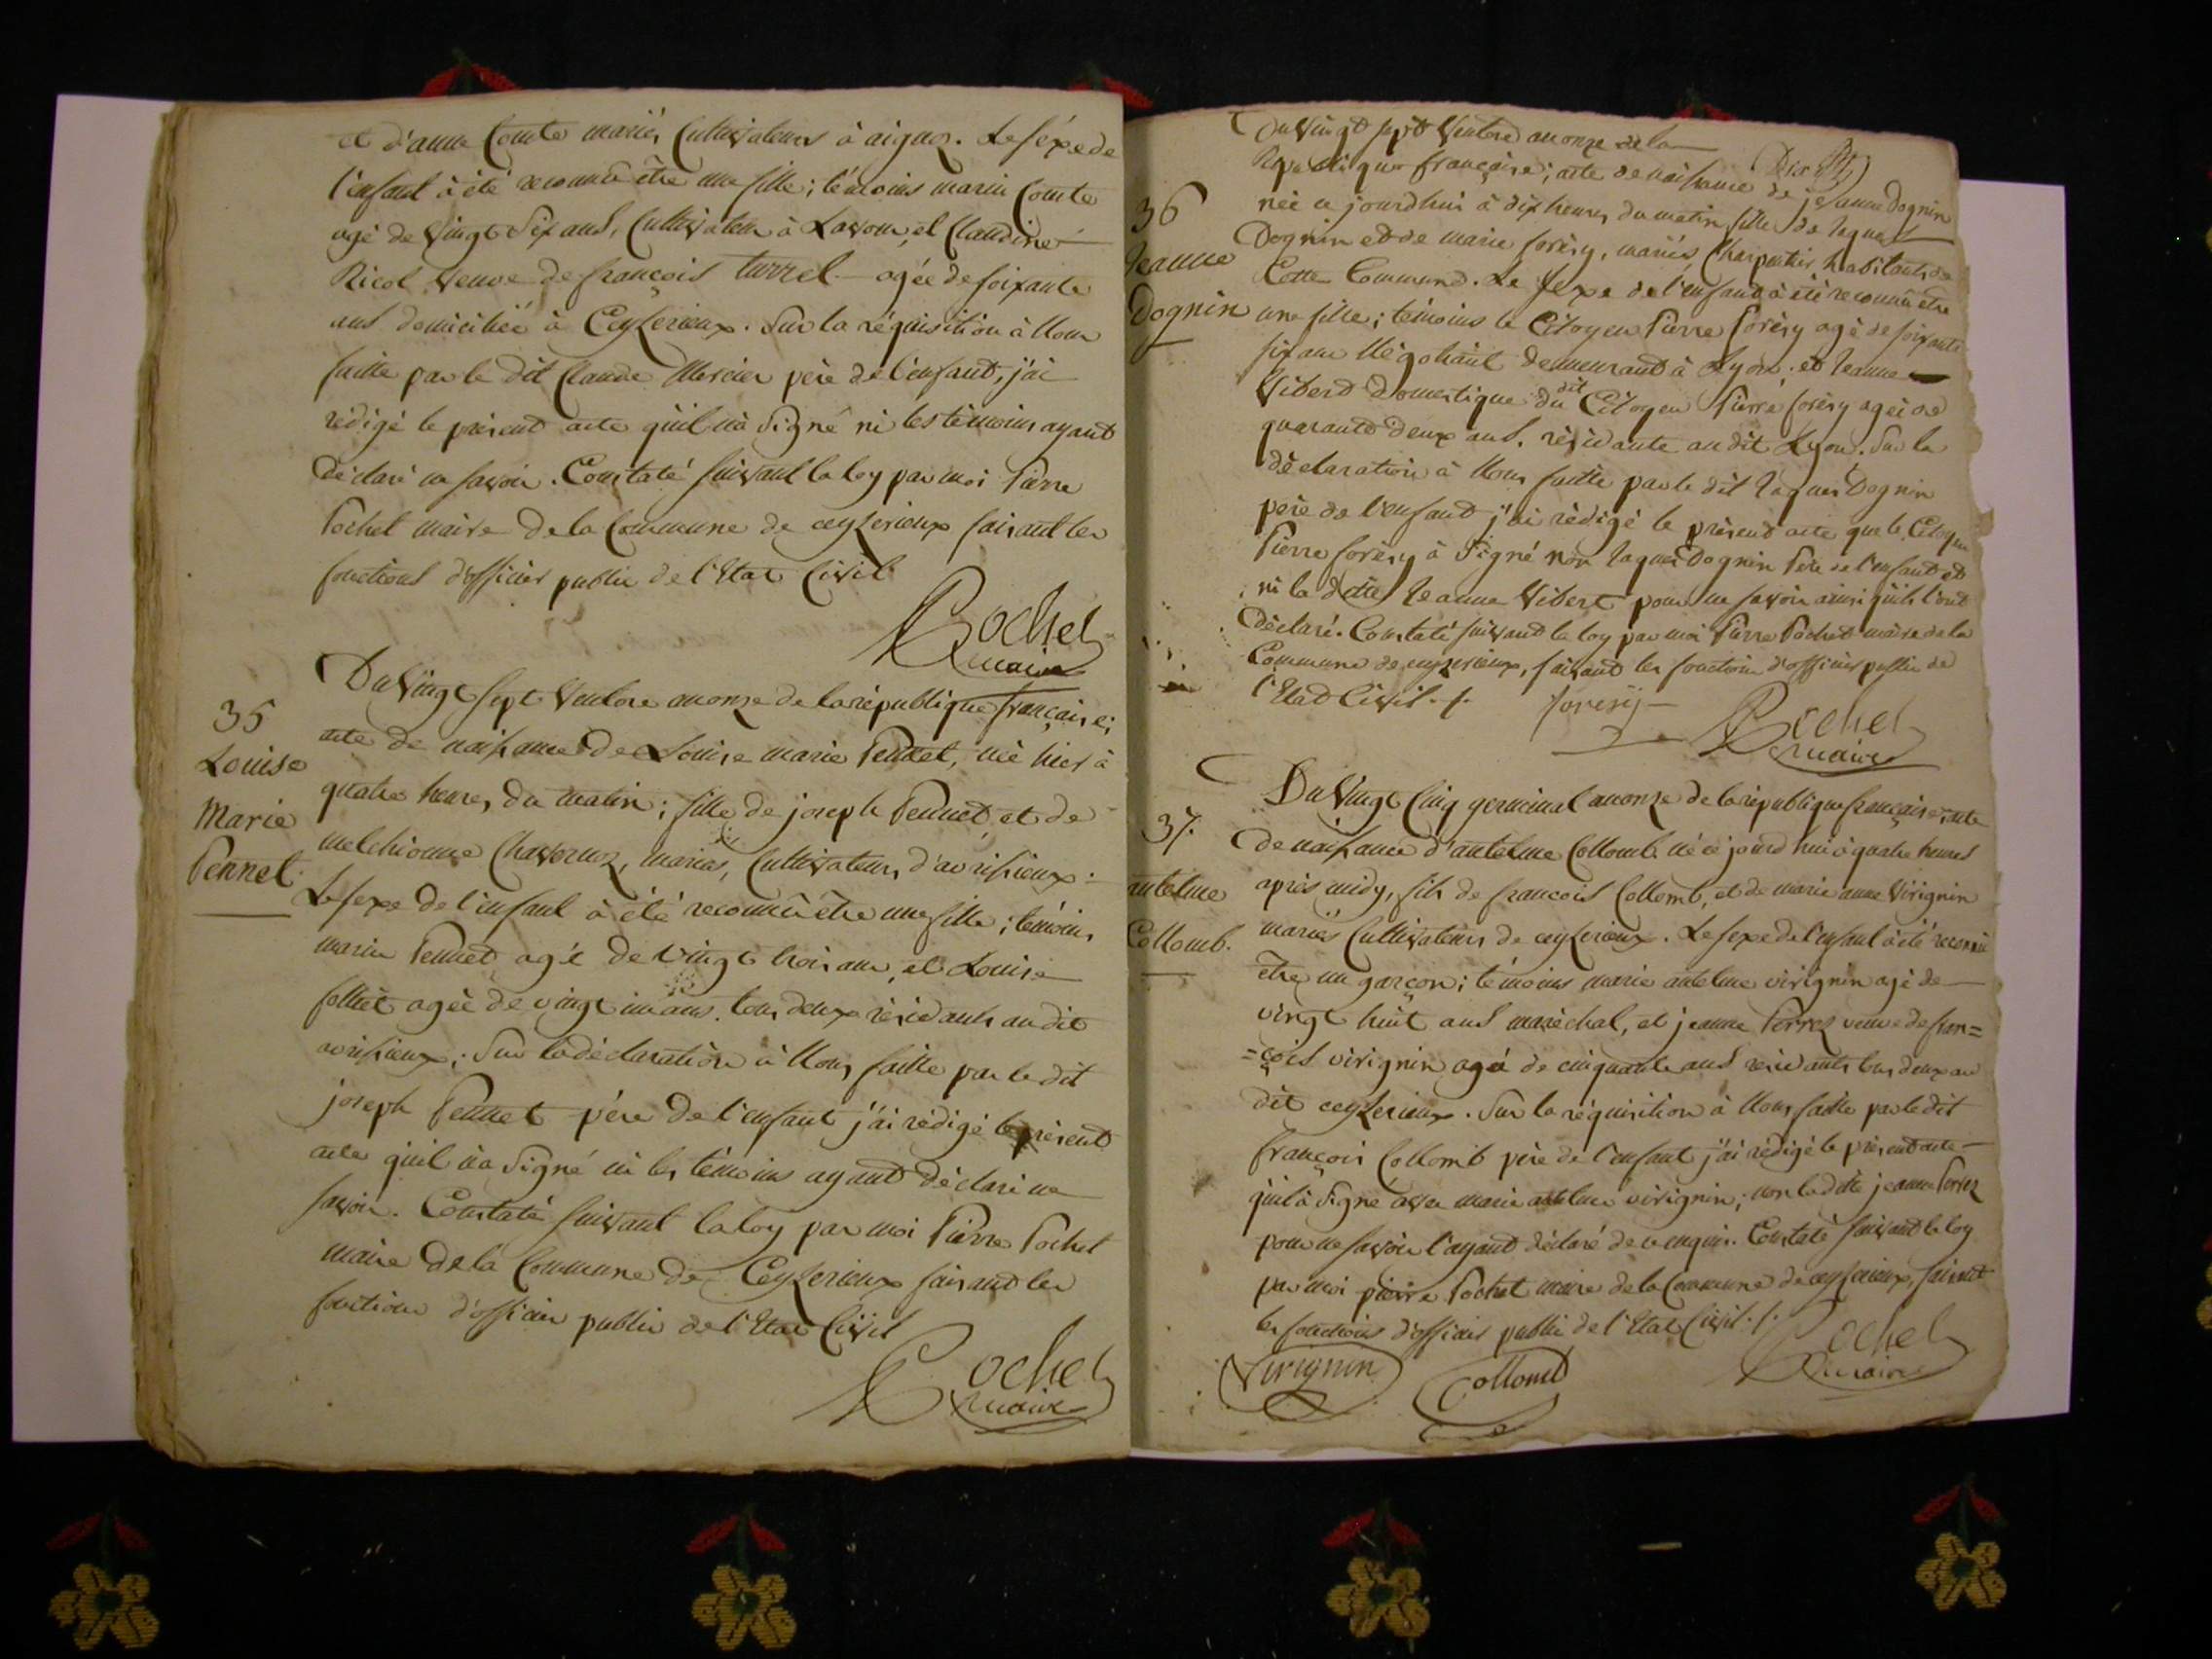 et d'anne Comte mariés Cultivateurs à aignoz. Le séxe de
l'enfant à été reconnu être une fille; témoins marin Comte
agé de Vingt Six ans, Cultivateur à Lavour, et Claudine
Nicol Veuve de françois turrel agée de soixante
ans domiciliée à Ceyzerieux. Sur la réquisition à Nous
faitte par le dit Claude Mercier père de l'enfant, j'ai
rédigé le présent acte qu'il n'a Signé ni les témoins ayant
Déclaré ne savoir. Constaté suivant la loy par moi Pierre
Pochet maire de la Commune de ceyzerieux faisant les
fonctions d'officier public de l'Etat Civil
Pochet
maire
35
Louise
Marie
Pennet
Du Vingt Sept Ventose an onze de la république française;
acte de naissance de Louise marie Pennet, née hier à
quatre heures du matin; fille de joseph Pennet et de
melchionne Chavornoz, mariés, Cultivateurs d'avrissieux:
Le sexe de l'enfant à été reconnu être une fille; témoins
marin Pennet agé de vingt trois ans, et Louise
folliet agée de vingt un ans. tous deux résidants au dit
avrissieux; Sur la déclaration à Nous faitte par le dit
joseph Pennet père de l'enfant j'ai rédigé le présent
acte qu'il n'a Signé ni les témoins ayant déclaré ne
savoir. Constaté suivant la loy par moi Pierre Pochet
maire de la Commune de Ceyzerieux faisant les
fonctions d'officier public de l'Etat Civil
Pochet
maire
36
Jeanne
Dognin
Du Vingt sept Ventose an onze de la
Republique française; acte de naissance de jeanne Dognin
née ce jourdhui à dix heures du matin fille de Jaques
Dognin et de marie forésy, mariés, Charpentier habitants de
Cette Commune. Le Sexe de l'enfant à été reconnu être
une fille; témoins le Citoyen Pierre forésy agé de soixante
six ans Négotiant demeurant à Lyon; et Jeanne
Vibert Domestique du dit Citoyen Pierre forésy agée de
quarante deux ans. résidante au dit Lyon. Sur la
déclaration à Nous faitte par le dit Jaques Dognin
père de l'enfant j'ai rédigé le présent acte que le Citoyen
Pierre forésy à Signé non Jaques Dognin Père de l'enfant et
ni la ditte Jeanne Vibert pour ne savoir ainsi qu'ils l'ont
Déclaré. Constaté suivant la loy par moi Pierre Pochet maire de la
Commune de ceyzerieux, faisant les fonctions d'officier public de
l'Etat Civil ./.
foresÿ
Pochet
maire
37.
antelme
Collomb.
Du Vingt Cinq germinal an onze de la république française; acte
de naissance d'antelme Collomb né ce jourd'hui à quatre heures
après midy, fils de françois Collomb, et de marie anne Virignin
mariés Cultivateurs de ceyzerieux. Le sexe de l'enfant à été reconnu
être un garçon; témoins marie antelme virignin agé de
vingt huit ans maréchal, et jeanne Perroz veuve de fran=
=çois virignin agée de cinquante ans résidants tous deux au
dit ceyzerieux. Sur la réquisition à Nous faitte par le dit
françois Collomb père de l'enfant j'ai rédigé le présent acte
qu'il à Signé avec marie antelme virignin; non la ditte jeanne Perroz
pour ne savoir l'ayant déclaré de ce enquis. Constaté suivant la loy
par moi pierre Pochet maire de la Commune de ceyzerieux, faisant
les fonctions d'officier public de l'Etat Civil ./.
Pochet
maire
Virignin
Collomb